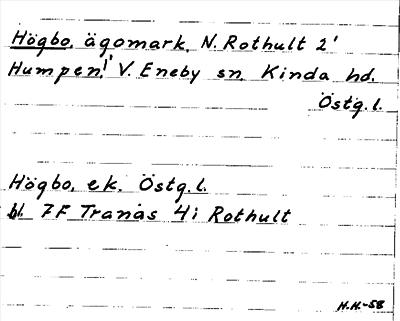 Högbo, ägomark, N. Rothult 2'
Humpen!' V. Eneby sn, Kinda hd.
Östg. l.
Högbo, ek. Östg. l.
bl. 7F Tranås 4i Rothult
H.H.-58